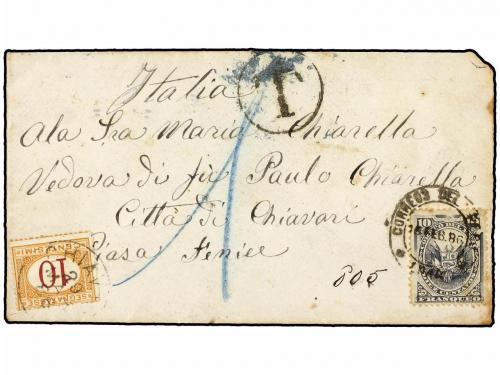 Italia
T
Ala Sra Maria Chiarella
Vedova di fu Paulo Chiarella
Città di Chiavari
Piasa Fenice
805
1
CORREOS DEL
FEB. 86
10
FRANQUEO
SEGNATASSE
10
CENTESIMI